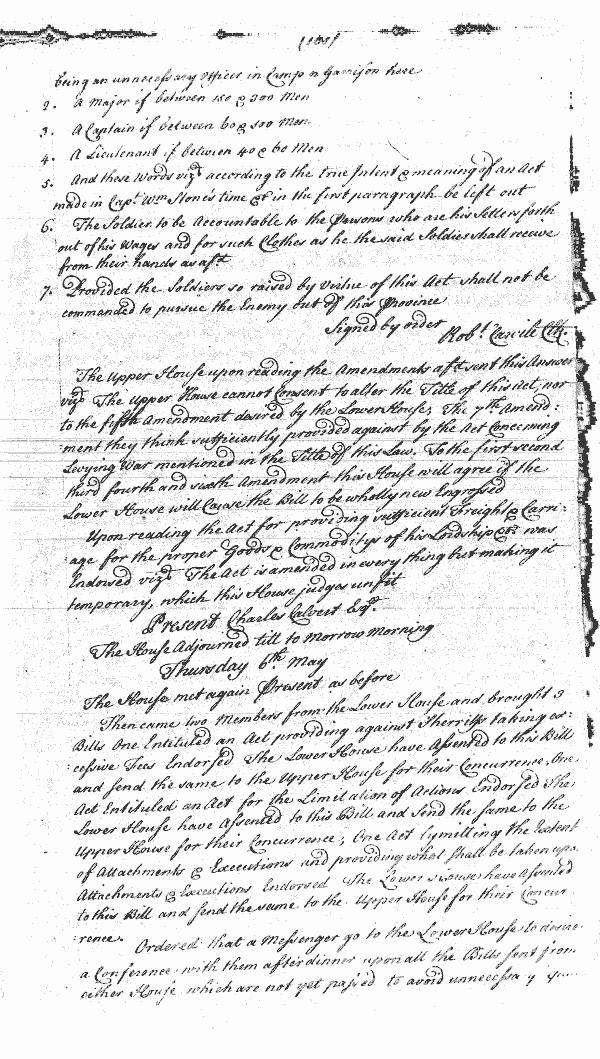 (188)
being an unnecessary Officer in Camp or Garrison here
2. A Major if between 150 & 300 Men
3. A Captain if between 60 & 100 Men
4. A Lieutenant if between 40 & 60 Men
5. And these Words vizt according to the true Intent & meaning of an Act
made in Capt Wm Stone's time &c in the first paragraph be left out
6. The Soldier to be Accountable to the Persons who are his Setters forth
out of his Wages and for such Clothes as he the said Soldier shall receive
from their hands as aft.
7. Provided the Soldiers so raised by virtue of this Act shall not be
commanded to pursue the Enemy out of this Province
Signed by order Robt. Carvile Clk.
The Upper House upon reading the Amendments aftd sent this Answer
vizt The Upper House cannot Consent to alter the Title of this Act, nor
to the fifth Amendment desired by the Lower House, The 7th Amend:
:ment they think sufficiently provided against by the Act Concerning
Levying War mentioned in the Title of this Law. To the first second
third fourth and sixth Amendment this House will agree if the
Lower House will Cause the Bill to be wholly new Engrossed
Upon reading the Act for providing sufficient Freight & Carri:
age for the proper Goods & Commoditys of his Lordship &ca was
Endorsed vizt The Act is amended in every thing but making it
temporary, which this House judges unfit
Present Charles Calvert Esqr.
The House Adjourned till to Morrow Morning
Thursday 6th May
The House met again Present as before
Then came two Members from the Lower House and brought 3
Bills One Entituled an Act providing against Sherriffs taking ex:
:cessive Fees Endorsed The Lower House have Assented to this Bill
and send the same to the Upper House for their Concurrence, One
Act Entituled an Act for the Limitation of Actions Endorsed The
Lower House have Assented to this Bill and send the same to the
Upper House for their Concurrence; One Act lymitting the Extent
of Attachments & Executions and providing what shall be taken upon
Attachments & Executions Endorsed The Lower House have assented
to this Bill and send the same to the Upper House for their Concur
:rence. Ordered that a Messenger go to the Lower House to desire
a Conference with them after dinner upon all the Bills sent from
either House which are not yet passed to avoid unnecessary